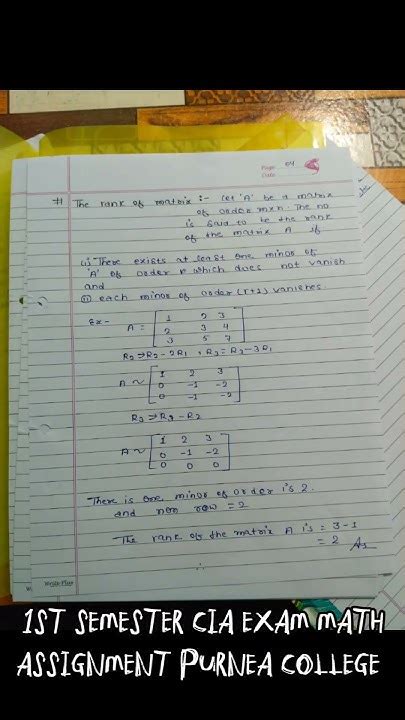 Page 04
Date
# The rank of matrix :- Let 'A' be a matrix
of order mxn. The no
is said to be the rank
of the matrix A if
(i) There exists at least one minor of
'A' of order r which does not vanish
and
(ii) each minor of order (r+1) vanishes.
Ex- A = [ 1 2 3
2 3 4
3 5 7 ]
R2 → R2 - 2R1 , R3 = R3 - 3R1
A ~ [ 1 2 3
0 -1 -2
0 -1 -2 ]
R3 → R3 - R2
A ~ [ 1 2 3
0 -1 -2
0 0 0 ]
There is one minor of order is 2.
and non row = 2
The rank of the matrix A is = 3-1
= 2 As
1ST SEMESTER CIA EXAM MATH
ASSIGNMENT PURNEA COLLEGE